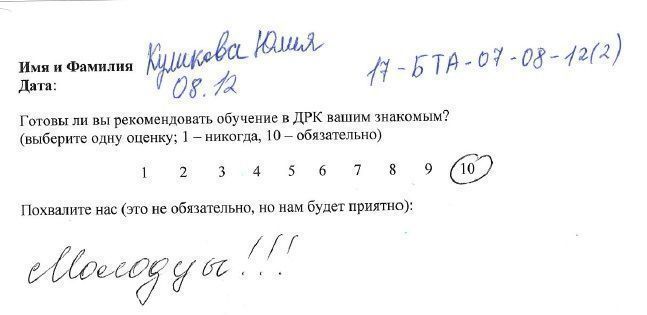 Имя и Фамилия Куликова Юлия
Дата: 08.12 17-БТА-07-08-12(2)
Готовы ли вы рекомендовать обучение в ДРК вашим знакомым?
(выберите одну оценку; 1 – никогда, 10 – обязательно)
1 2 3 4 5 6 7 8 9 10
Похвалите нас (это не обязательно, но нам будет приятно):
Молодцы!!!